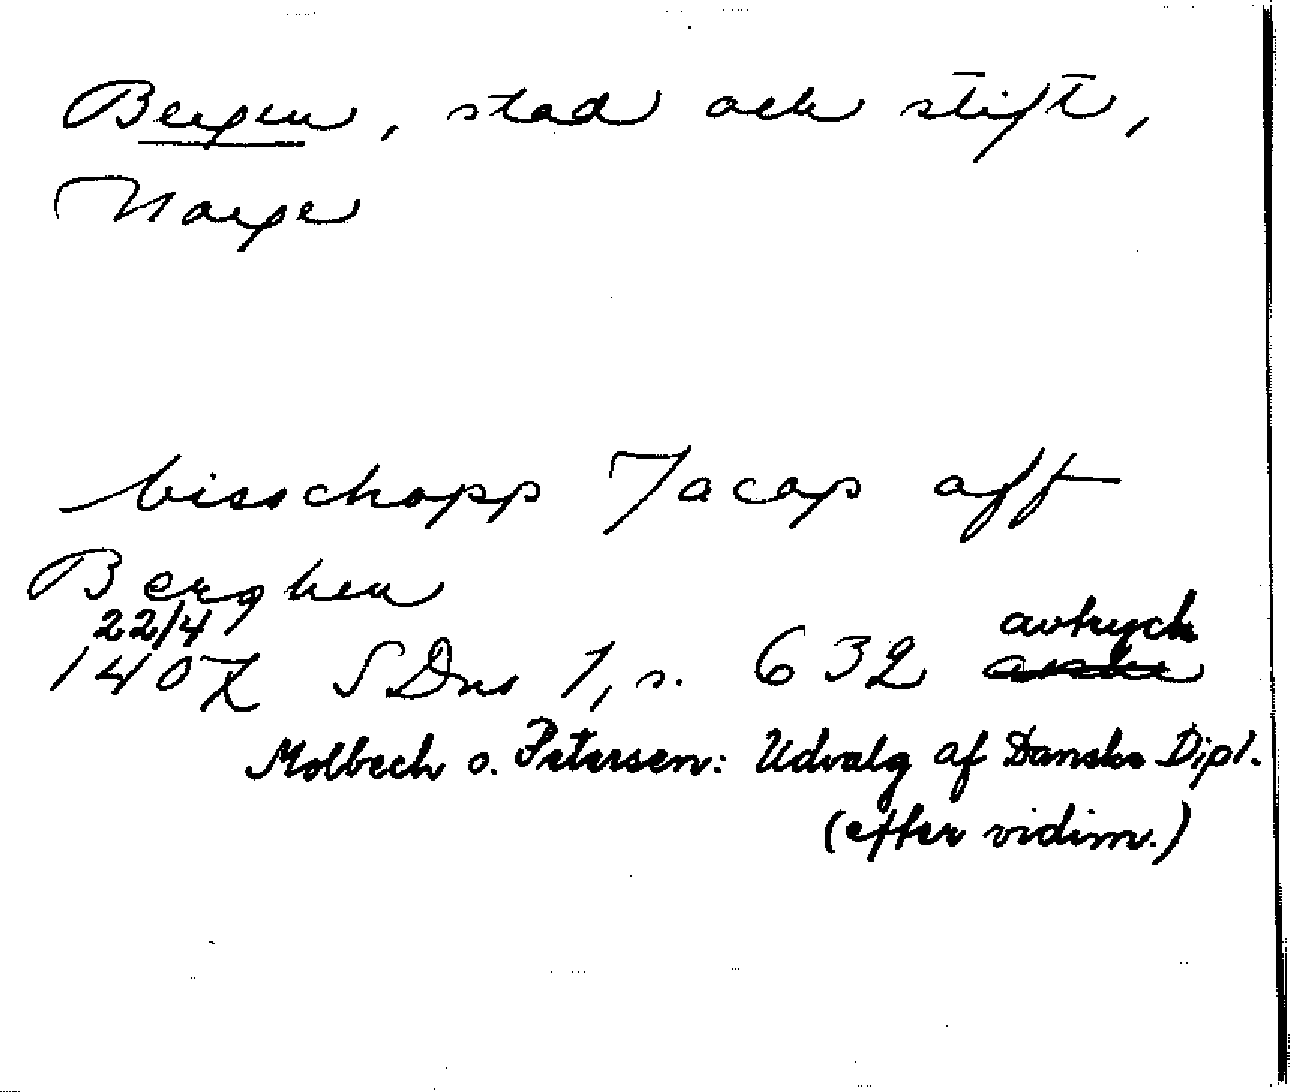 Bergen, stad och stift,
Norge
bisschopp Jacop aff
Berghen
22/4 avtryck
1407 SDns 1, s. 632
Molbech o. Petersen: Udvalg af Danske Dipl.
(efter vidim.)